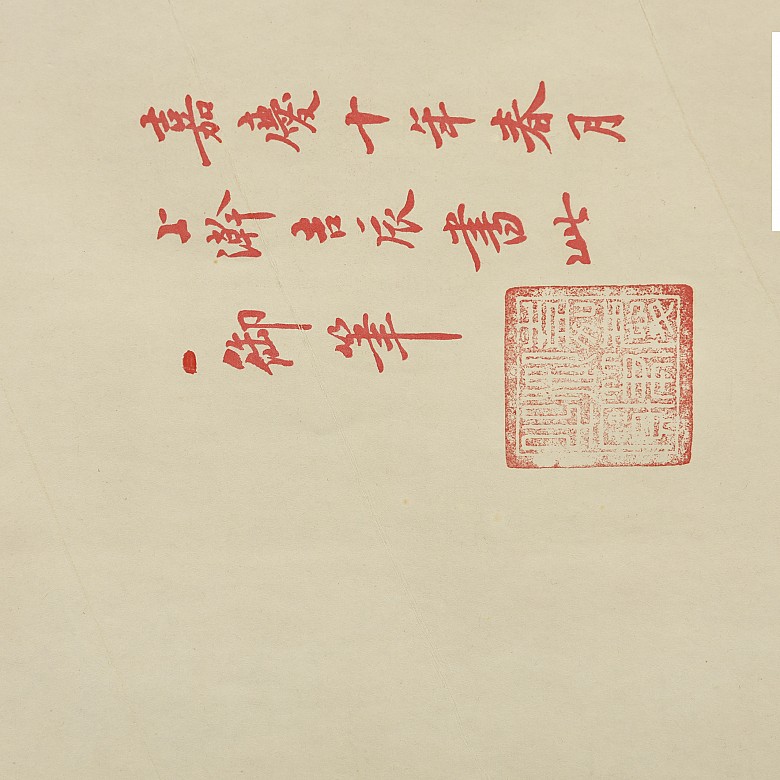 嘉慶十年春月
上澣吉辰書此
御筆